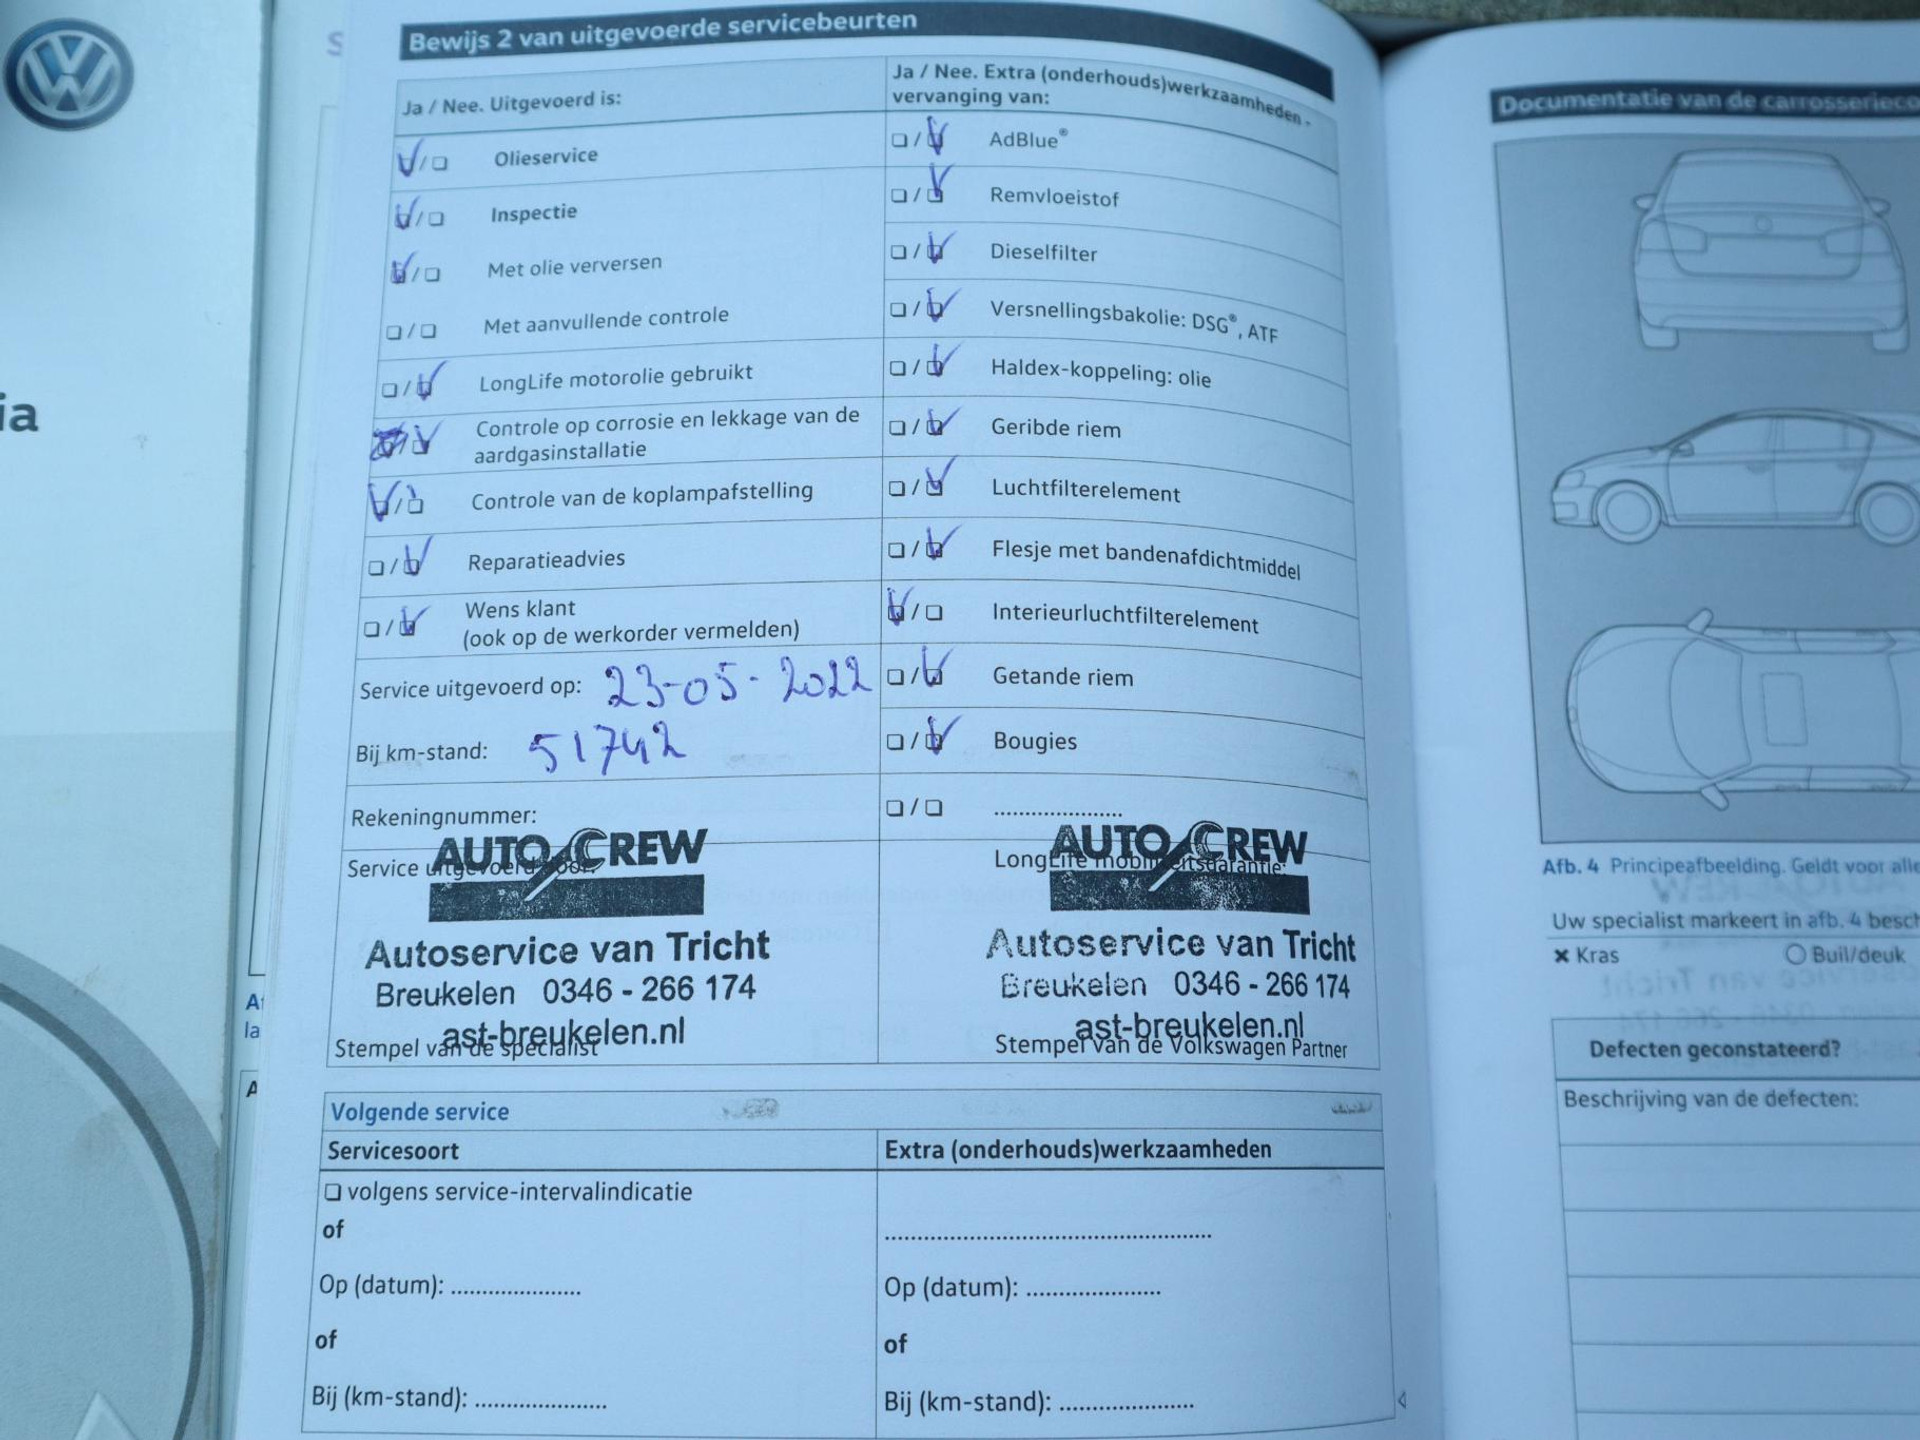 ia
Bewijs 2 van uitgevoerde servicebeurten
Ja / Nee. Uitgevoerd is:
Olieservice
Inspectie
Met olie verversen
Met aanvullende controle
LongLife motorolie gebruikt
Controle op corrosie en lekkage van de
aardgasinstallatie
Controle van de koplampafstelling
Reparatieadvies
Wens klant
(ook op de werkorder vermelden)
Service uitgevoerd op: 23-05-2022
Bij km-stand: 51742
Rekeningnummer:
Service uitgevoerd door:
AUTO CREW
Autoservice van Tricht
Breukelen 0346 - 266 174
ast-breukelen.nl
Stempel van de specialist
Ja / Nee. Extra (onderhouds)werkzaamheden -
vervanging van:
AdBlue®
Remvloeistof
Dieselfilter
Versnellingsbakolie: DSG®, ATF
Haldex-koppeling: olie
Geribde riem
Luchtfilterelement
Flesje met bandenafdichtmiddel
Interieurluchtfilterelement
Getande riem
Bougies
....................
LongLife mobiliteitsgarantie:
AUTO CREW
Autoservice van Tricht
Breukelen 0346 - 266 174
ast-breukelen.nl
Stempel van de Volkswagen Partner
Volgende service
Servicesoort
volgens service-intervalindicatie
of
Op (datum): ....................
of
Bij (km-stand): ....................
Extra (onderhouds)werkzaamheden
..................................................
Op (datum): ....................
of
Bij (km-stand): ....................
Documentatie van de carrosserieco
Afb. 4 Principeafbeelding. Geldt voor alle
Uw specialist markeert in afb. 4 besch
Kras
Buil/deuk
Defecten geconstateerd?
Beschrijving van de defecten: